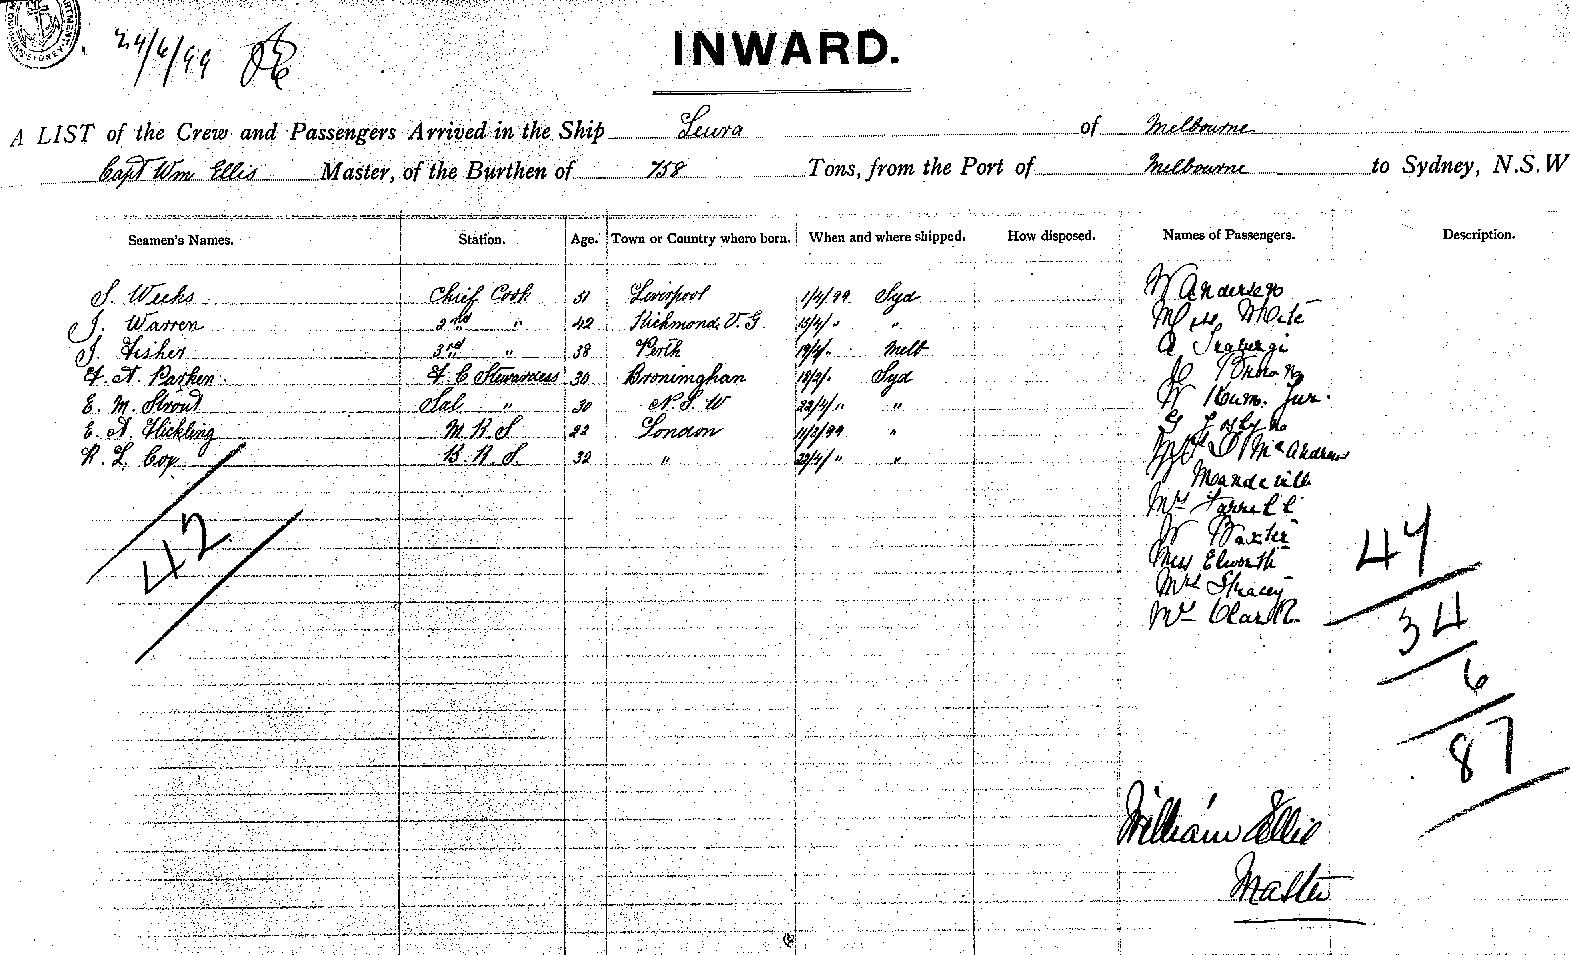 24/4/99
INWARD.
A LIST of the Crew and Passengers Arrived in the Ship Leura of Melbourne
Capt Wm Ellis Master, of the Burthen of 758 Tons, from the Port of Melbourne to Sydney, N.S.W
Seamen's Names. Station. Age. Town or Country where born. When and where shipped. How disposed. Names of Passengers. Description.
S. Weeks Chief Cook 51 Liverpool 1/4/99 Syd W Anderson
J. Warren 2nd " 42 Richmond V.G. " " Miss White
J. Fisher 3rd " 38 Perth Melb A
F. A. Parken F C Stewardess 30 Bronimghan Syd Brown
E. M. Stroud Sal " 30 N.S.W 22/4/" " W Jur.
E. A. Hickling M R S 22 London 11/2/99 "
R. L. Cox B. R. S. 32 " 22/4/" " McAndrew
Mandeville
Mr Farrell
W Baxter
Miss Elworth
Mrs Stracey
Mr Clark
42
47
34
6
87
William Ellis
Master